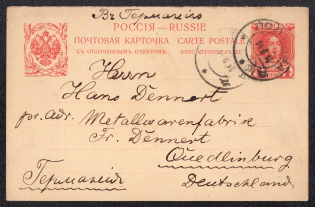 Въ Германію
РОССІЯ — RUSSIE
ПОЧТОВАЯ КАРТОЧКА CARTE POSTALE
СЪ ОПЛАЧЕННЫМЪ ОТВѢТОМЪ AVEC RÉPONSE
Herrn
Hans Dennert
pr. adr. Metallwarenfabrik
Fr. Dennert
Quedlinburg
Германія Deutschland